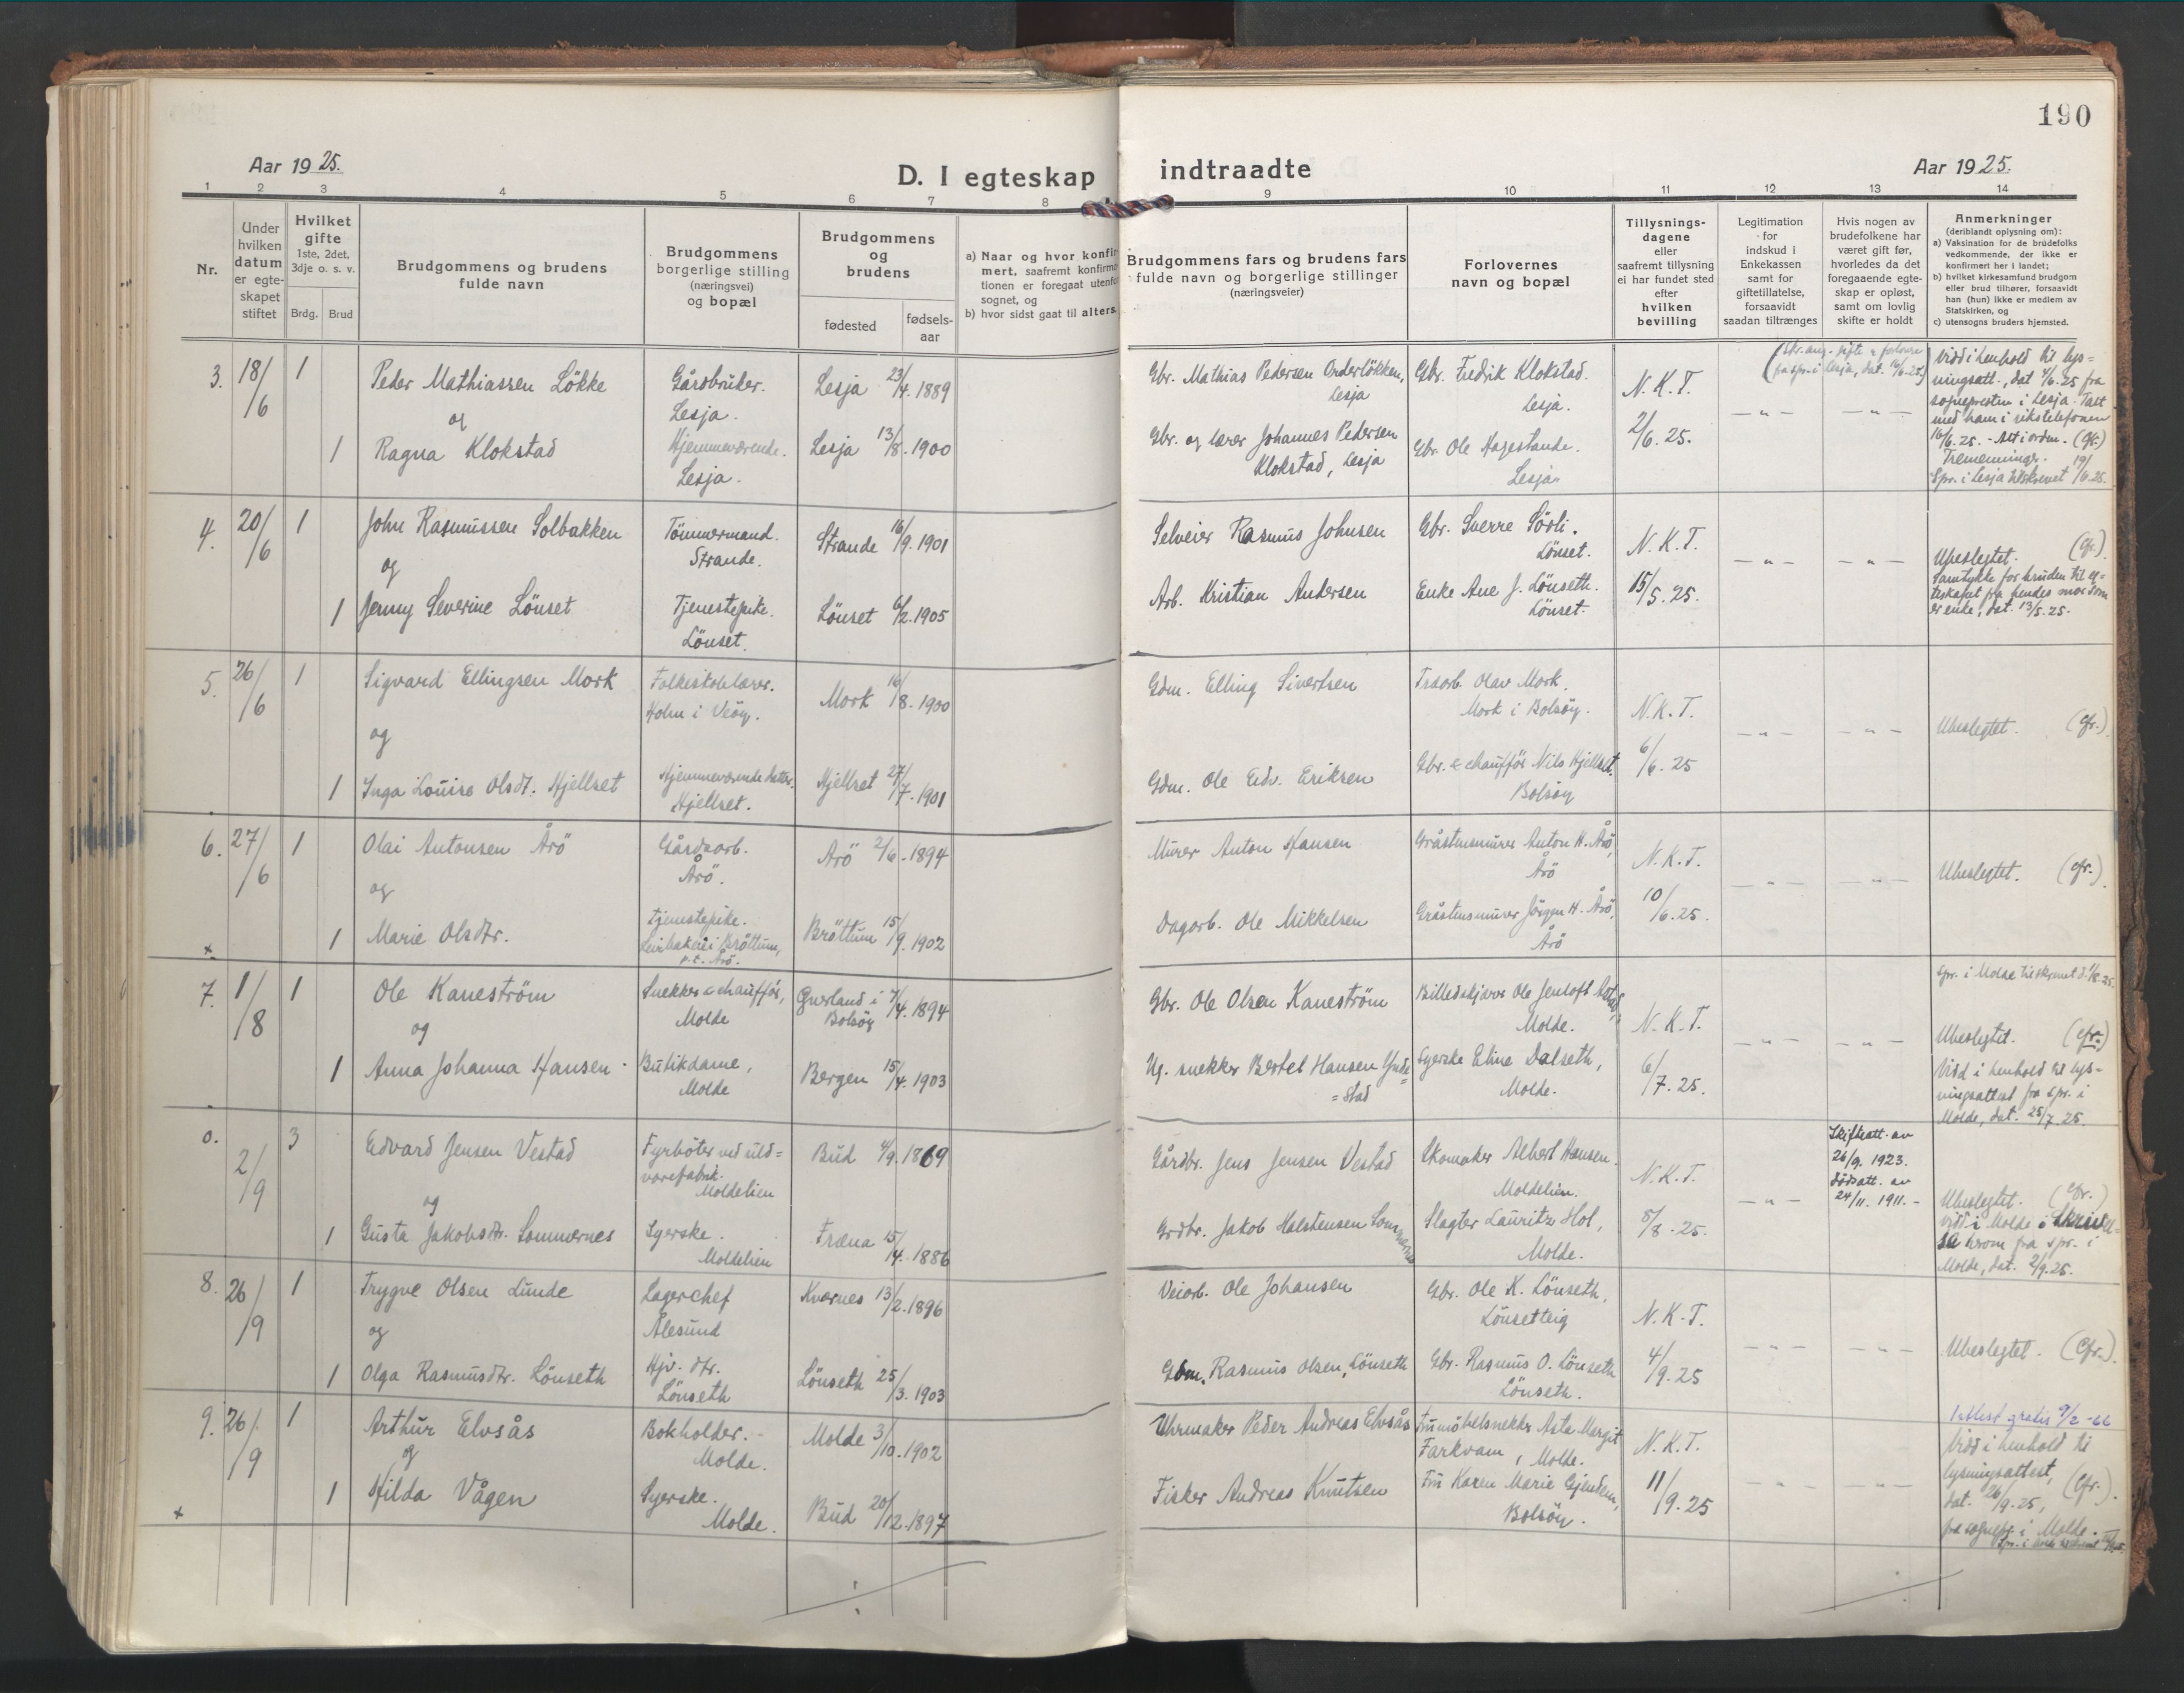 190
Aar 1925.
D. I egteskap indtraadte
Aar 1925.
1 2 3 4 5 6 7 8 9 10 11 12 13 14
Nr.
Under hvilken datum er egteskapet stiftet
Hvilket gifte 1ste, 2det, 3dje o. s. v.
Brdg. Brud
Brudgommens og brudens fulde navn
Brudgommens borgerlige stilling (næringsvei) og bopæl
Brudgommens og brudens
fødested
fødsels-aar
a) Naar og hvor konfir
mert, saafremt konfirma
tionen er foregaat utenfor
sognet, og
b) hvor sidst gaat til alters.
Brudgommens fars og brudens fars
fulde navn og borgerlige stillinger
(næringsveier)
Forlovernes
navn og bopæl
Tillysnings-
dagene
eller
saafremt tillysning
ei har fundet sted
efter
hvilken
bevilling
Legitimation
for
indskud i
Enkekassen
samt for
giftetillatelse,
forsaavidt
saadan tiltrænges
Hvis nogen av
brudefolkene har
været gift før,
hvorledes da det
foregaaende egte-
skap er opløst,
samt om lovlig
skifte er holdt
Anmerkninger
(deriblandt oplysning om):
a) Vaksination for de brudefolks
vedkommende, der ikke er
konfirmert her i landet;
b) hvilket kirkesamfund brudgom
eller brud tilhører, forsaavidt
han (hun) ikke er medlem av
Statskirken, og
c) utensogns bruders hjemsted.
3. 18/6 1 Peder Mathiassen Lökke Gårdbruker. Lesja. Lesja 23/4. 1889
og
1 Ragna Klokstad Hjemmeværende. Lesja. Lesja 13/8. 1900
Gbr. Mathias Pedersen Orderlökken, Lesja
Gbr. Fredrik Klokstad. Lesja.
Gbr. og lærer Johannes Pedersen Klokstad, Lesja
Gbr. Ole Hagestande. Lesja
N.K.T. 2/6. 25.
— " — — " —
Vidd i henhold til lys-
ningsatt., dat 4/6.25 fra
sognepresten i Lesja. Talt
med ham i rikstelefonen
16/6.25. - Alt i orden. (Gfr.)
Tremenninger. 19/
Spr. i Lesja tilskrevet /6.25.
4. 20/6 1 John Rasmussen Solbakken Tömmermand. Strande. Strande 16/9. 1901
og
1 Jenny Severine Lönset Tjenestepike. Lönset. Lönset 6/2. 1905
Selveier Rasmus Johnsen
Gbr. Sverre Sörli. Lönset.
Arb. Kristian Andersen
Enke Ane J. Lönseth. Lönset.
N.K.T. 15/5. 25.
— " — — " —
Ubeslegtet. (Cfr.)
Samtykke for bruden til eg-
teskapet fra hendes mor som
er enke, dat. 13/5.25.
5. 26/6 1 Sigvard Ellingsen Mork Folkeskolelærer. Holm i Veöy. Mork 16/8. 1900
og
1 Inga Louise Olsdt. Hjellset Hjemmeværende datter. Hjellset. Hjellset 27/7. 1901
Gdm. Elling Sivertsen
Træarb. Olav Mork. Mork i Bolsöy.
Gdm. Ole Edv. Eriksen
Gbr. & chaufför Nils Hjellset. Bolsöy
N.K.T. 6/6. 25
— " — — " —
Ubeslegtet. (Cfr.)
6. 27/6 1 Olai Antonsen Årö Gårdsarb. Årö. Årö 2/6. 1894
og
1 Marie Olsdtr. Tjenestepike. i Bröttum, p.t. Årö. Bröttum 15/9. 1902
Murer Anton Hansen
Gråstensmurer Anton H. Årö, Årö
Dagarb. Ole Mikkelsen
Gråstensmurer Jörgen H. Årö, Årö
N.K.T. 10/6. 25.
— " — — " —
Ubeslegtet. (Cfr.)
7. 1/8 1 Ole Kaneström Snekker & chaufför, Molde Guerland i Bolsöy 7/4. 1894
og
1 Anna Johanna Hansen Butikdame, Molde Bergen 15/4. 1903
Gbr. Ole Olsen Kaneström
Billedskjærer Ole Jenloft Molde.
Ug. snekker Bertel Hansen Gude=stad
Syerske Eline Dalseth, Molde.
N.K.T. 6/7. 25.
— " — — " —
Spr. i Molde tilskrevet d. 1/8 25.
Ubeslegtet. (Cfr.)
Vidd i henhold til lys-
ningsattest fra spr. i
Molde, dat. 25/7.25.
0. 2/9 3 Edvard Jensen Vestad Fyrböter ved uld=varefabrik. Moldelien Bud 4/9. 1869
og
1 Gusta Jakobsdtr. Sommernes Syerske. Moldelien Fræna 15/4. 1886
Gårdbr. Jens Jensen Vestad
Skomaker Albert Hansen. Moldelien.
Grdbr. Jakob Halstensen Sommernes
Slagter Lauritz Hol, Molde.
N.K.T. 8/8. 25.
— " —
Skifteatt. av
26/9. 1923.
Dödsatt. av
24/11. 1911. -
Ubeslegtet. (Cfr.)
Vidd i Molde
fra spr. i
Molde, dat. 2/9.25.
8. 26/9 1 Trygve Olsen Lunde Lagerchef Ålesund Kvernes 13/2. 1896
og
1 Olga Rasmusdtr. Lönseth Hjv. dtr. Lönseth Lönseth 25/3. 1903
Veiarb. Ole Johansen
Gbr. Ole K. Lönseth, Lönsetteig
Gdm. Rasmus Olsen, Lönseth
Gbr. Rasmus O. Lönseth Lönseth.
N.K.T. 4/9. 25
— " — — " —
Ubeslegtet. (Cfr.)
9. 26/9 1 Arthur Elvsås Bokholder. Molde. Molde 3/10. 1902
og
1 Hilda Vågen Syerske. Molde. Bud 20/12. 1897
Uhrmaker Peder Andreas Elvsås
Fru möbelsnekker Asta Margit Farkvam, Molde.
Fisker Andreas Knutsen
Fru Karen Marie Gjendem, Bolsöy.
N.K.T. 11/9. 25
— " — — " —
1 attest gratis 9/2-66
Vidd i henhold til
lysningsattest, (Cfr.)
dat. 26/9.25,
fra sognepr. i Molde.